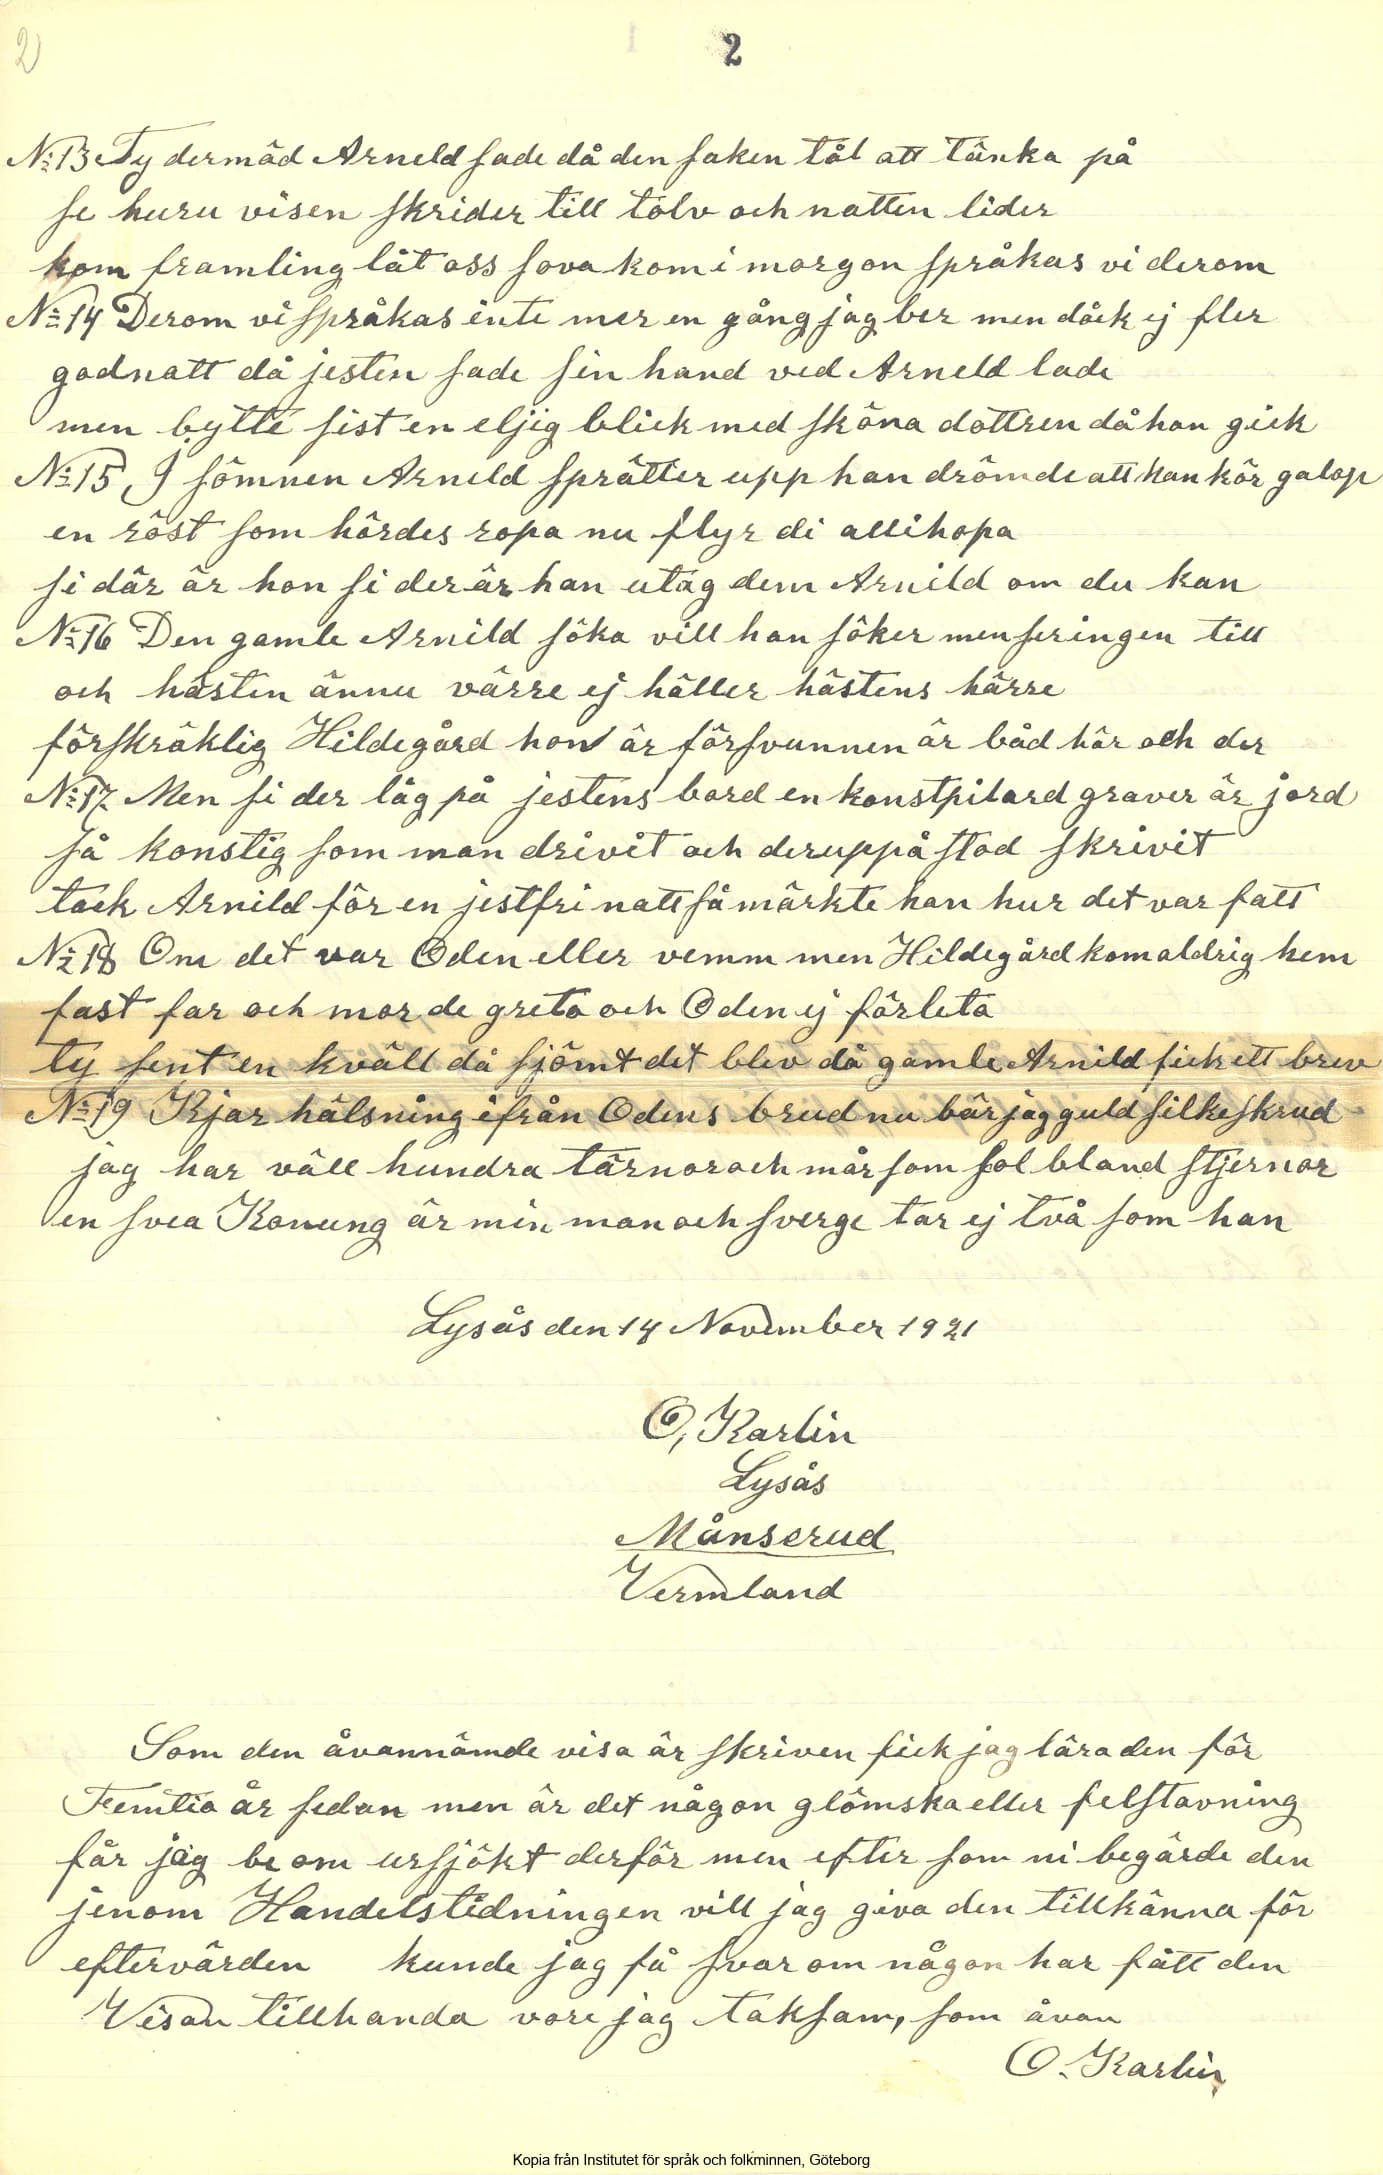 2)
2
No 13 Ty dermäd Arneld sade då den saken tål att tänka på
se huru visen skrider till tolv och natten lider
kom framling låt oss sova kom i morgon språkas vi derom
No 14 Derom vi språkas inte mer en gång jag ber men dåck ej fler
godnatt då jesten sade sin hand ved Arneld lade
men bytte sist en eljig blick med sköna dottren då han gick
No 15 I sömnen Arneld sprätter upp han drömde att han kör galop
en röst som hördes ropa nu flyr di allihopa
si där är hon si der är han utag dem Arnild om du kan
No 16 Den gamle Arnild söka vill han söker men seringen till
och hästen ännu värre ej häller hästens härre
förskräklig Hildegård hon är försvunnen är båd här och der
No 17 Men si der låg på jestens bord en konstpilard graver är jord
så konstig som man drivit och deruppå stod skrivit
tack Arnild för en jestfri natt så märkte han hur det var fatt
No 18 Om det var Oden eller vemm men Hildegård kom aldrig hem
fast far och mor de greto och Oden ej förleta
ty sent en kväll då sjömt det blev då gamle Arnild fick ett brev
No 19 Kjar hälsning ifrån Odens brud nu bär jag guld silkeskrud
jag har väll hundra tärnor och mår som sol bland stjernor
en svea Konung är min man och sverge tar ej två som han
Lysås den 14 November 1921
O, Karlin
Lysås
Månserud
Vermland
Som den åvannämde visa är skriven fick jag lära den för
Femtio år sedan men är det någon glömska eller felstavning
får jag be om ursjökt derför men efter som ni begärde den
jenom Handelstidningen vill jag giva den tillkänna för
eftervärden kunde jag få svar om någon har fått den
Visan tillhanda vore jag taksam, som åvan
O. Karlin
Kopia från Institutet för språk och folkminnen, Göteborg